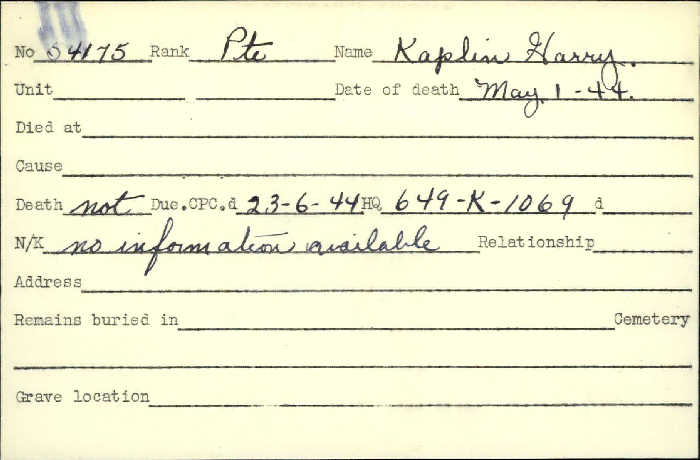 No 54175 Rank Pte Name Kaplin Harry.
Unit Date of death May 1-44.
Died at
Cause
Death not Due.CPC.d 23-6-44 HQ 649-K-1069 d
N/K no information available Relationship
Address
Remains buried in Cemetery
Grave location